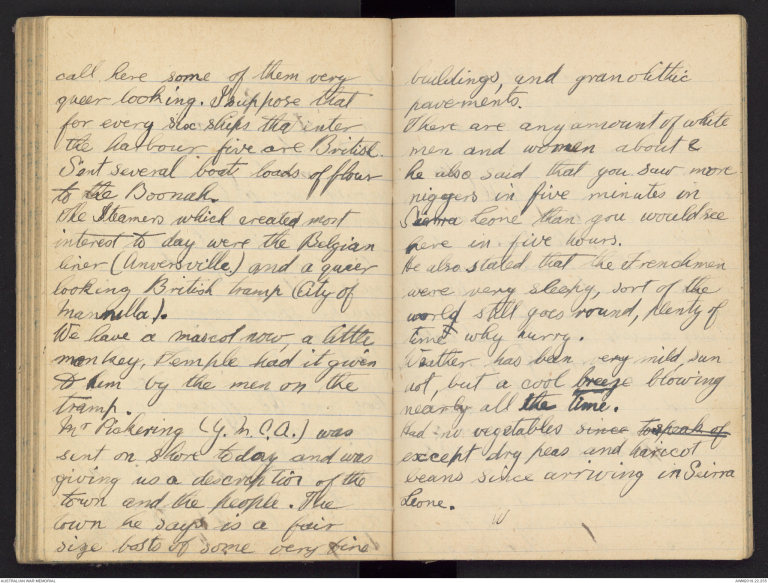 call here some of them very
queer looking. I suppose that
for every six ships tha inter
the harbour five are British.
Sent several boat loads of flour
to the Boonah.
The Steamers which created most
interest to day were the Belgian
liner (Anversville.) and a queer
looking British tramp (City of
Mannilla).
We have a mascot now, a little
monkey, Temple had it given
to him by the men on the
tramp.
Mr Pickering (Y.M.C.A.) was
sent on shore today and was
giving us a description of the
town and the people. The
town he says is a fair
size bosts of some very fine
buildings, and granolithic
pavements.
There are any amount of white
men and women about &
he also said that you saw more
niggers in five minutes in
Sierra Leone than you would see
here in five hours.
He also stated that the Frenchmen
were very sleepy, sort of the
world still goes round, plenty of
time why hurry.
Weather has been very mild, sun
hot, but a cool breeze blowing
nearly all the time.
Had no vegetables since to speak of
except dry peas and haricot
beans since arriving in Seirra
Leone.
AUSTRALIAN WAR MEMORIAL